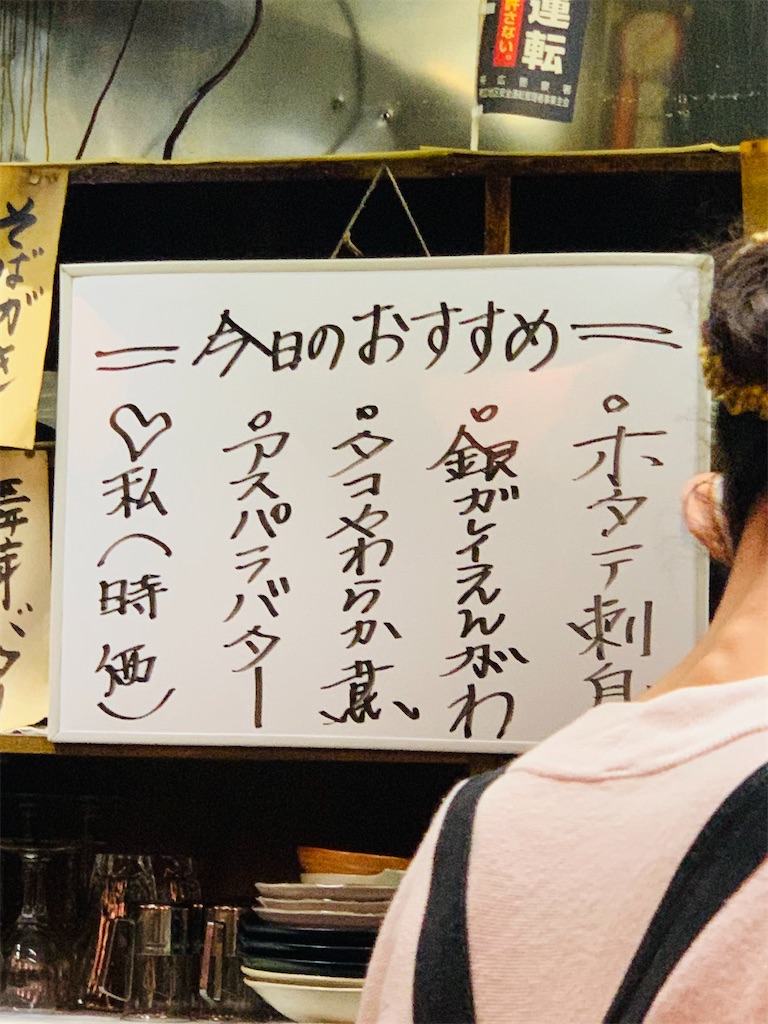 運転
許さない。
今日のおすすめ
ホタテ刺身
銀ガレイえんがわ
タコやわらか煮
アスパラバター
♡私(時価)
そばがき